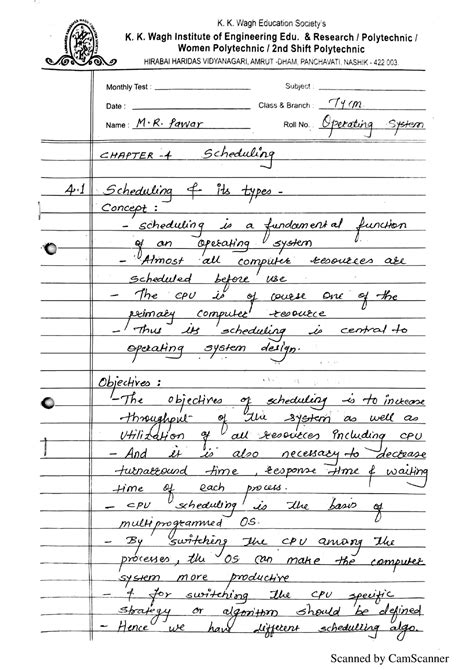 K. K. Wagh Education Society's
K. K. Wagh Institute of Engineering Edu. & Research / Polytechnic /
Women Polytechnic / 2nd Shift Polytechnic
HIRABAI HARIDAS VIDYANAGARI, AMRUT -DHAM, PANCHAVATI, NASHIK - 422 003.
Monthly Test : Subject :
Date : Class & Branch : TYCM
Name : M.R. Pawar Roll No. Operating System
CHAPTER-4 Scheduling
4.1 Scheduling & its types -
Concept :
- scheduling is a fundamental function
of an operating system
- Almost all computer resources are
scheduled before use
- The CPU is of course one of the
primary computer resource
- Thus its scheduling is central to
operating system design.
Objectives :
- The objectives of scheduling is to increase
throughput of the system as well as
utilization of all resources including CPU
- And it is also necessary to decrease
turnaround time, response time & waiting
time of each process.
- CPU scheduling is the basis of
multiprogrammed OS.
- By switching the CPU among the
processes, the OS can make the computer
system more productive
- & for switching the CPU specific
strategy or algorithm should be defined
- Hence we have different scheduling algo.
Scanned by CamScanner